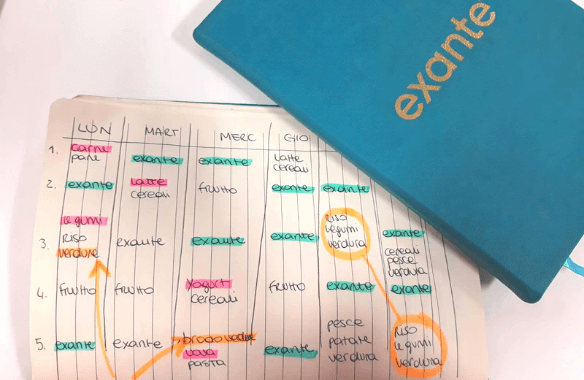 exante
LUN MART MERC GIO
1. carne exante exante Latte
pane cereali
2. exante Latte frutto exante exante
cereali
legumi Riso
3. Riso exante exante exante legumi exante
verdure verdura cereali
pesce
verdura
4. frutto frutto yogurt frutto exante exante
cereali
5. exante exante brodo exante pesce Riso
uova patate legumi
pasta verdura verdura